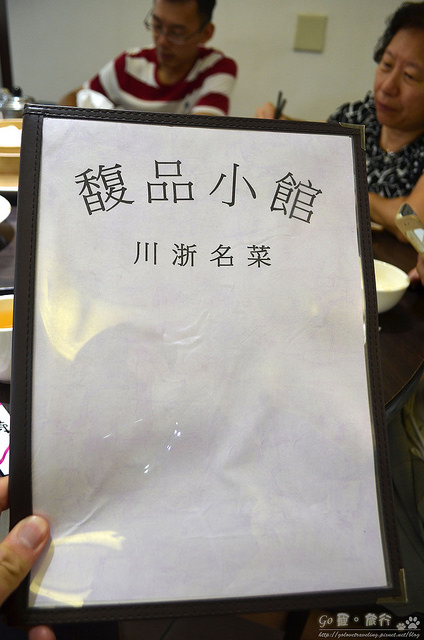 馥品小館
川浙名菜
Go 垦。旅行
http://golovetraveling.pixnet.net/blog